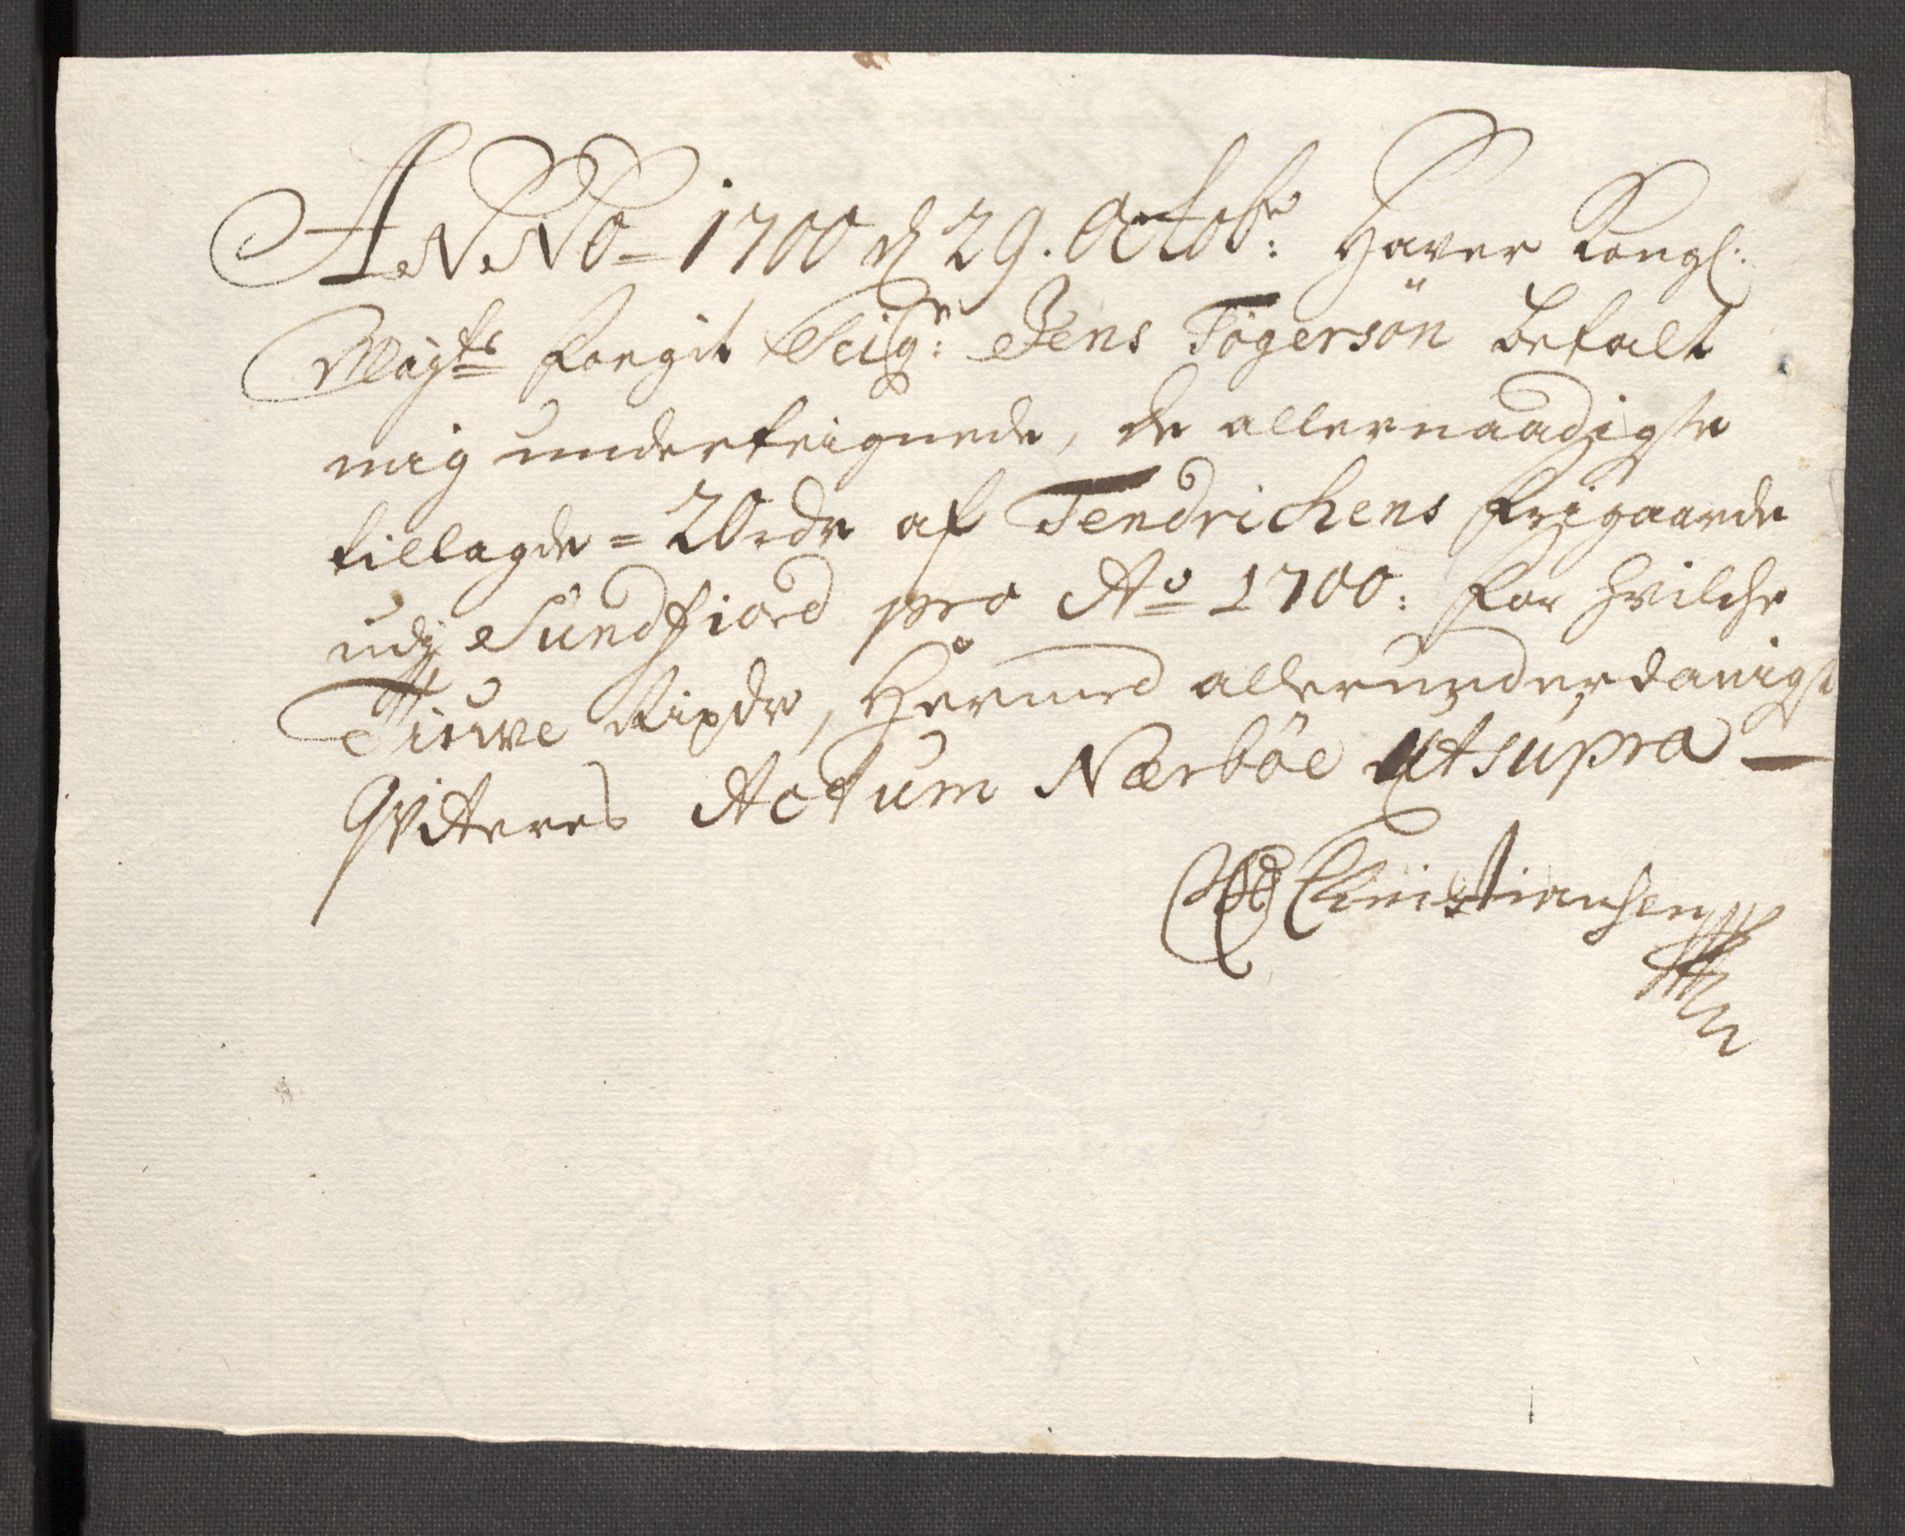 ANNO 1700 d 29. Octobr: Haver Kongl:
Mayts fougit Seigr: Jens Tögersön betalt
mig underteignede, de allernaadigste
tillagde = 20 rdr af Fendrichens frigaarde
udj Sundfiord pro Ao 1700: for hvilche
Tiuve Rixdr, Hermed allerunderdanigst
Qvitteres Actum Nærböe Utsupra
Christiansen